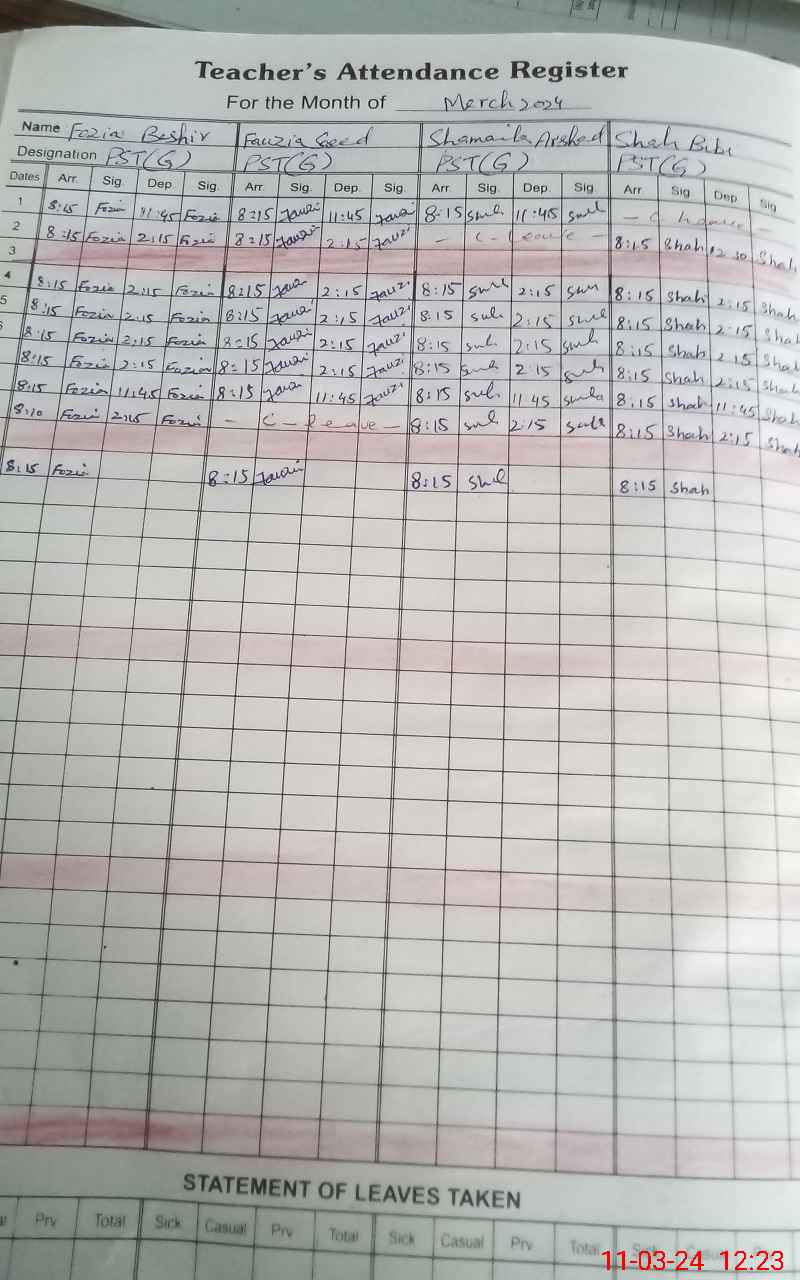 Teacher's Attendance Register
For the Month of Merch 2024
Name Fozia Beshir Fauzia Saeed Shamaila Arshed Shah Bibi
Designation PST(G) PST(G) PST(G) PST(G)
Dates Arr. Sig. Dep Sig. Arr. Sig. Dep. Sig. Arr. Sig. Dep. Sig Arr Sig Dep. Sig
1 8:15 Fozia 11:45 Fozia 8:15 Fauzi 11:45 Fauzi 8:15 smh 11:45 smh - C
2 8:15 Fozia 2:15 Fozia 8:15 Fauzi 2:15 Fauzi - C-leave - 8:15 Shah 12 30 Shah
3
4 8:15 Fozia 2:15 Fozia 8:15 Fauzi 2:15 Fauzi 8:15 smh 2:15 smh 8:15 Shah 2:15 Shah
5 8:15 Fozia 2:15 Fozia 8:15 Fauzi 2:15 Fauzi 8:15 smh 2:15 smh 8:15 Shah 2:15 Shah
8:15 Fozia 2:15 Fozia 8:15 Fauzi 2:15 Fauzi 8:15 smh 2:15 smh 8:15 Shah 2 15 Shah
8:15 Fozia 2:15 Fozia 8:15 Fauzi 2:15 Fauzi 8:15 smh 2 15 smh 8:15 Shah 2:15 Shah
8:15 Fozia 11:45 Fozia 8:15 Fauzi 11:45 Fauzi 8:15 smh 11 45 8:15 Shah 11:45 Shah
8:10 Fozia 2:15 Fozia - C-leave - 8:15 smh 2:15 8:15 Shah 2:15 Shah
8:15 Fozia 8:15 Fauzi 8:15 8:15 Shah
STATEMENT OF LEAVES TAKEN
Prv Total Sick Casual Prv Total Sick Casual Prv Total Sick
11-03-24 12:23